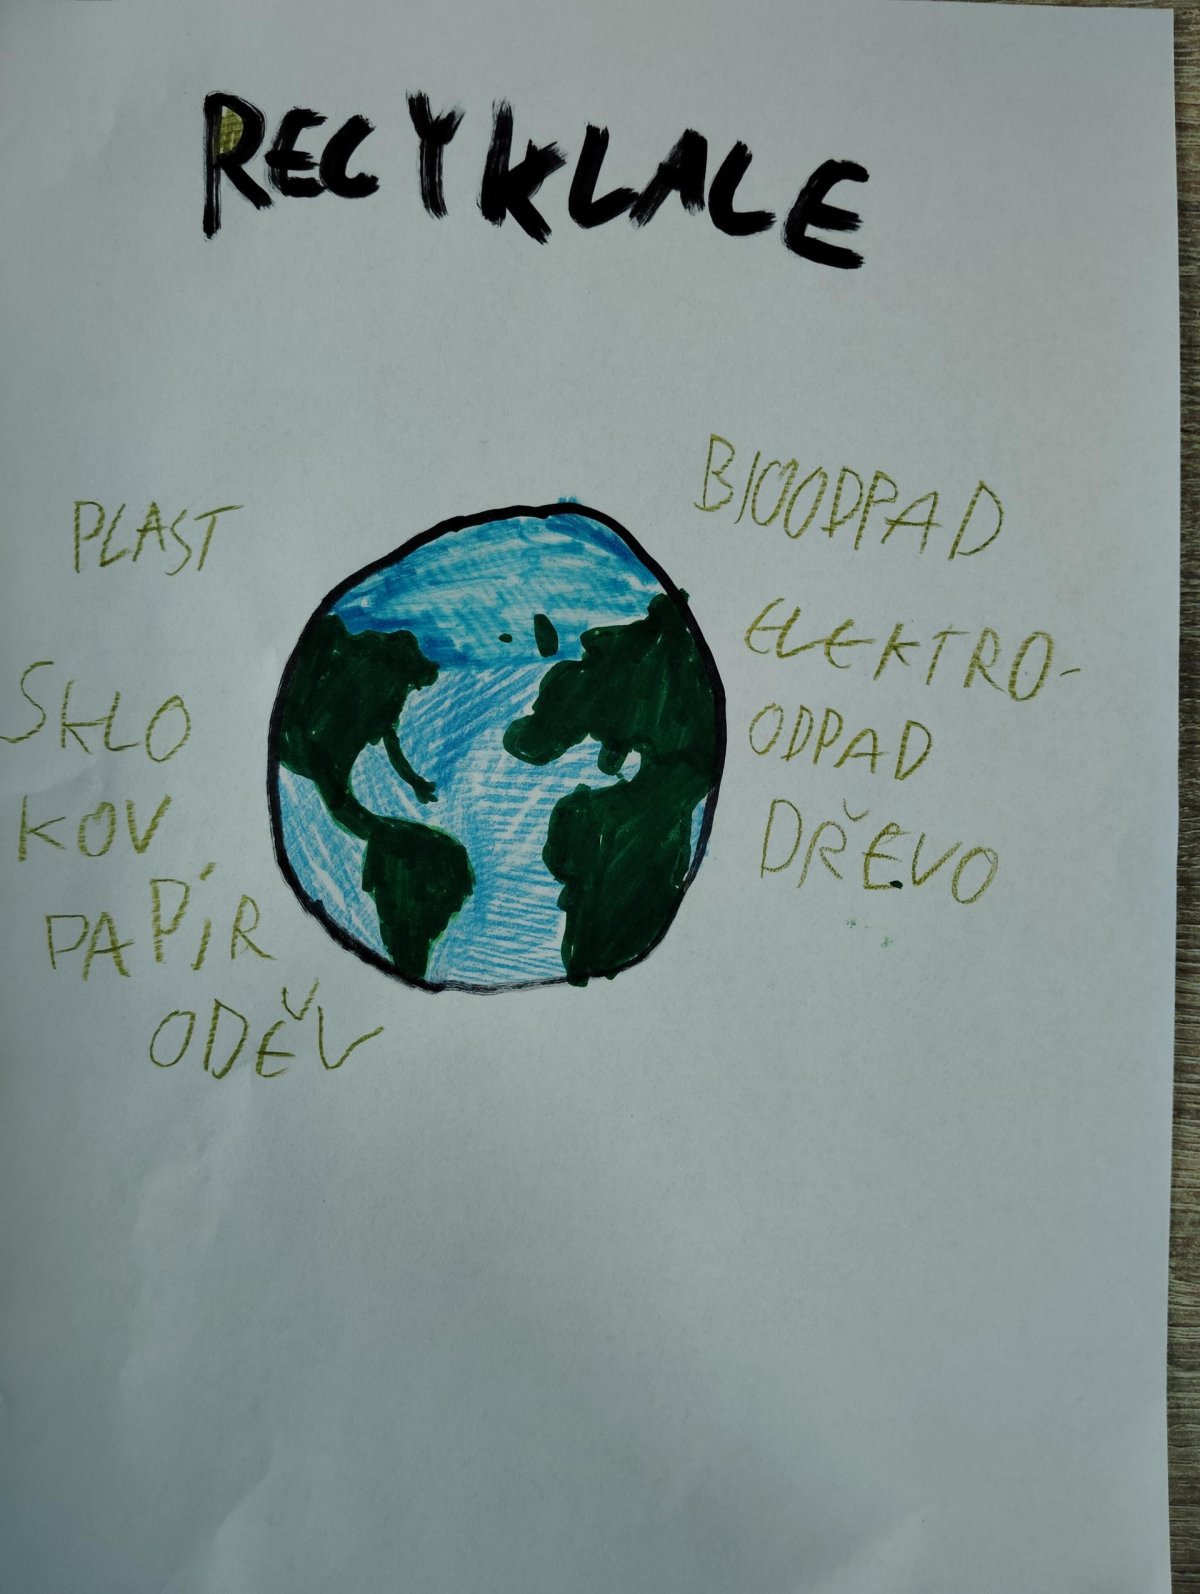 RECYKLACE
PLAST
SKLO
KOV
PAPÍR
ODĚV
BIOODPAD
ELEKTRO-
ODPAD
DŘEVO